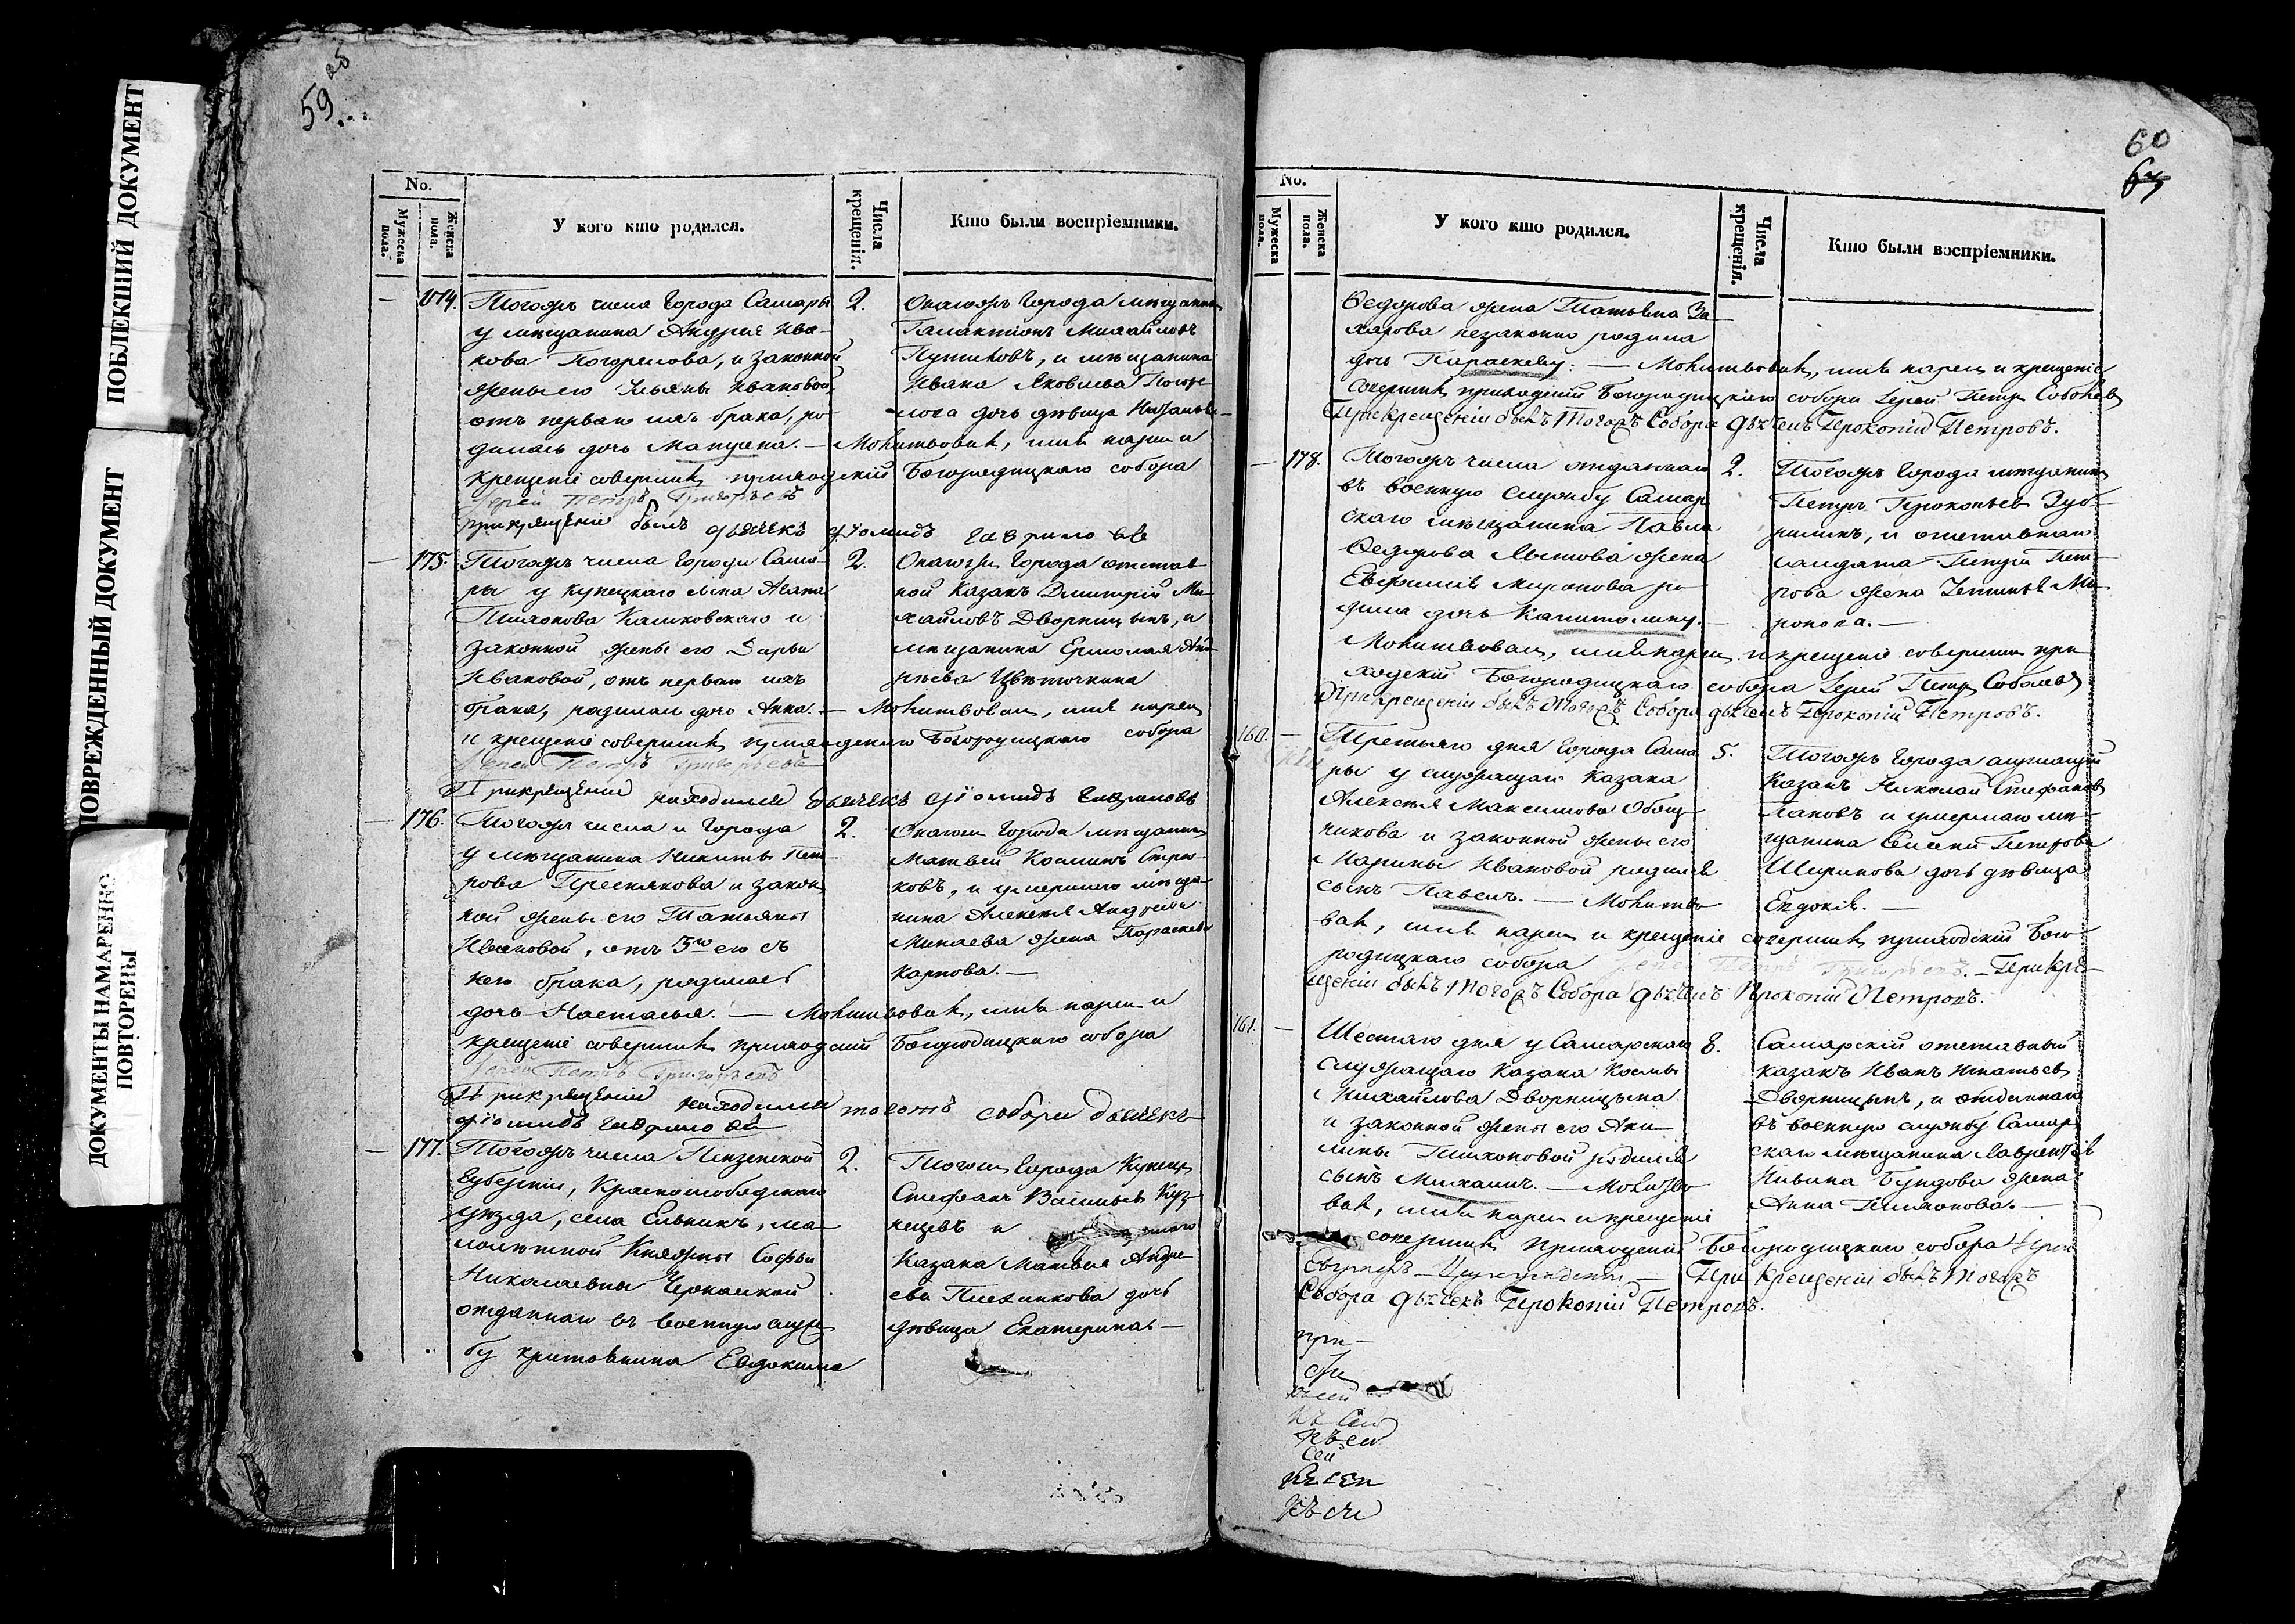 ПОБЛЕКШИЙ ДОКУМЕНТ
ПОВРЕЖДЕННЫЙ ДОКУМЕНТ
ДОКУМЕНТЫ НАМАРЕННО
ПОВТОРЕНЫ
59 об
No.
Мужеска пола.
Женска пола.
У кого кто родился.
Числа крещенія.
Кто были воспріемники.
— 174. Тогожъ числа Города Самары
у мѣщанина Андрея Ива-
нова Погорелова, и законной
жены его Ульяны Ивановой,
отъ перваго ихъ брака, ро-
дилась дочь Матрена. — Молитвовалъ, имя нарекъ и
крещеніе совершилъ приходскій Богородицкаго собора
Іерей Петръ Григорьевъ
прикрещеніи былъ дьячекъ Діомидъ Гаврилове
2. Онагожъ Города мѣщанинъ
Галактіонъ Михайловъ
и мѣщанина
Ивана Яковлева
дочь дѣвица
— 175. Тогожъ числа Города Сама-
ры у купецкаго сына
Тихонова Калиновскаго и
законной жены его Дарьи
Ивановой, отъ перваго ихъ
брака, родилась дочь Анна. — Молитвовалъ, имя нарекъ
и крещеніе совершилъ приходскій Богородицкаго собора
Іерей Петръ Григорьевъ
Прикрещеніи находился дьячекъ Діомидъ Гавриловъ
2. Онагожъ Города отстав-
ной Казакъ Дмитрій Ми-
хайловъ Дворницынъ, и
мѣщанина Ермолая Анд-
рѣева Цвѣточкина
— 176. Тогожъ числа и Города
у мѣщанина Никиты Пет-
рова Преснякова и закон
ной жены его Татьяны
Ивановой, отъ 3го его съ
нею брака, родилась
дочь Настасья. — Молитвовалъ, имя нарекъ и
крещеніе совершилъ приходскій Богородицкаго собора
Іерей Петръ Григорьевъ
Прикрещеніи находился тогожъ собора дьячекъ
Діомидъ Гаврилове
2. Онагожъ Города мѣщанинъ
Матвей Козминъ
и умершаго мѣща-
нина Алексѣя Андреева
Минаева жена Параскева
Карпова. —
— 177. Тогожъ числа Пензенской
Губерніи, Краснослободскаго
уѣзда, села Ельникъ, ма-
лолѣтной Княжны Софьи
Николаевны Черкаской
отданнаго въ военную служ
бу крестьянина Евдокима
2. Тогожъ Города Купецъ
Стефанъ Васильевъ Куз-
нецовъ и
Казака Матвея Андре
ева дочь
дѣвица Екатерина —
60
No.
Мужеска пола.
Женска пола.
У кого кто родился.
Числа крещенія.
Кто были воспріемники.
Федорова жена Татьяна За-
харова незаконно родила
дочь Параскеву: — Молитвовалъ, имя нарекъ и крещеніе
совершилъ приходскій Богородицкаго собора Іерей Петръ Соболевъ
Прикрещеніи былъ Тогожъ Собора дьячекъ Прокопій Петровъ.
— 178. Тогожъ числа отданнаго
въ военную службу Самар
скаго мѣщанина Павла
Федорова жена
Евфимія Миронова ро
дила дочь Капитолину. —
Молитвовалъ, имя нарекъ и крещеніе совершилъ при-
ходскій Богородицкаго собора Іерей Петръ Соболевъ
Прикрещеніи былъ Тогожъ Собора дьячекъ Прокопій Петровъ.
2. Тогожъ Города мѣщанинъ
Петръ Прокопьевъ Зуб-
рилинъ, и отставнаго
салдата Петра Пет-
рова жена Ми-
ронова. —
160. — Третьяго дня Города Сама
ры у служащаго Казака
Алексѣя Максимова Обощ-
чикова и законной жены его
Марины Ивановой родился
сынъ Павелъ. — Молитво
валъ, имя нарекъ и крещеніе совершилъ приходскій Бого-
родицкаго собора Іерей Петръ Григорьевъ. — Прикре-
щеніи былъ Тогожъ Собора дьячекъ Прокопій Петровъ.
5. Тогожъ Города служащій
Казакъ Николай Стефановъ
Пановъ и умершаго мѣ-
щанина Семена Петрова
Ширинова дочь дѣвица
Евдокія. —
161. — Шестаго дня у Самарскаго
служащаго Казака Козмы
Михайлова Дворницына
и законной жены его Аки-
лины Тихоновой родился
сынъ Михаилъ. — Молитво
валъ, имя нарекъ и крещеніе
совершилъ приходскій Богородицкаго собора
При крещеніи былъ Тогожъ
Собора дьячекъ Прокопій Петровъ.
8. Самарскій отставный
казакъ Иванъ Игнатьевъ
Дворницынъ, и отданнаго
въ военную службу Самар
скаго мѣщанина Лаврентія
Ильина жена
Анна Тихонова. —
при —